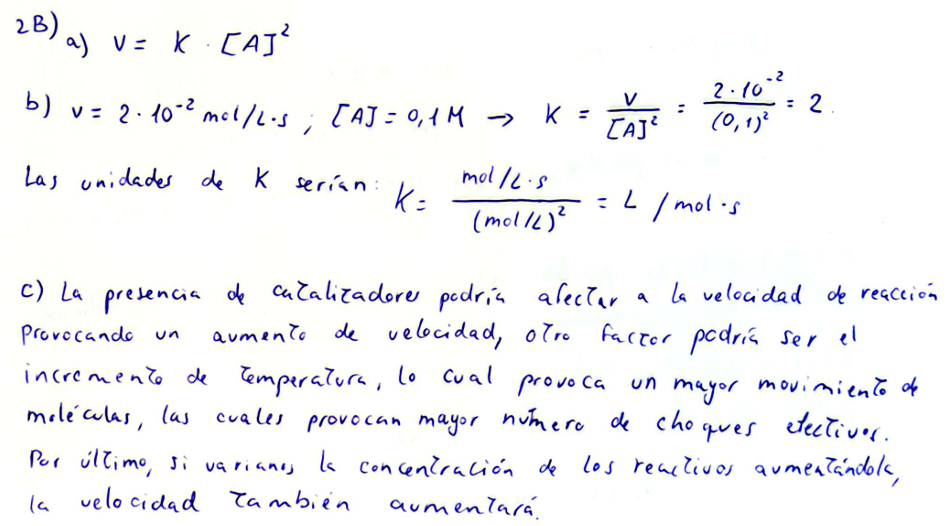 2B) a) V = K · [A]²
b) v = 2 · 10⁻² mol/L·s ; [A] = 0,1 M → K = v/[A]² = 2·10⁻²/(0,1)² = 2.
Las unidades de K serían: K = mol/L·s/(mol/L)² = L /mol·s
c) La presencia de catalizadores podría afectar a la velocidad de reacción
Provocando un aumento de velocidad, otro factor podría ser el
incremento de temperatura, lo cual provoca un mayor movimiento de
moléculas, las cuales provocan mayor número de choques efectivos.
Por último, si variamos la concentración de los reactivos aumentándola,
la velocidad también aumentará.